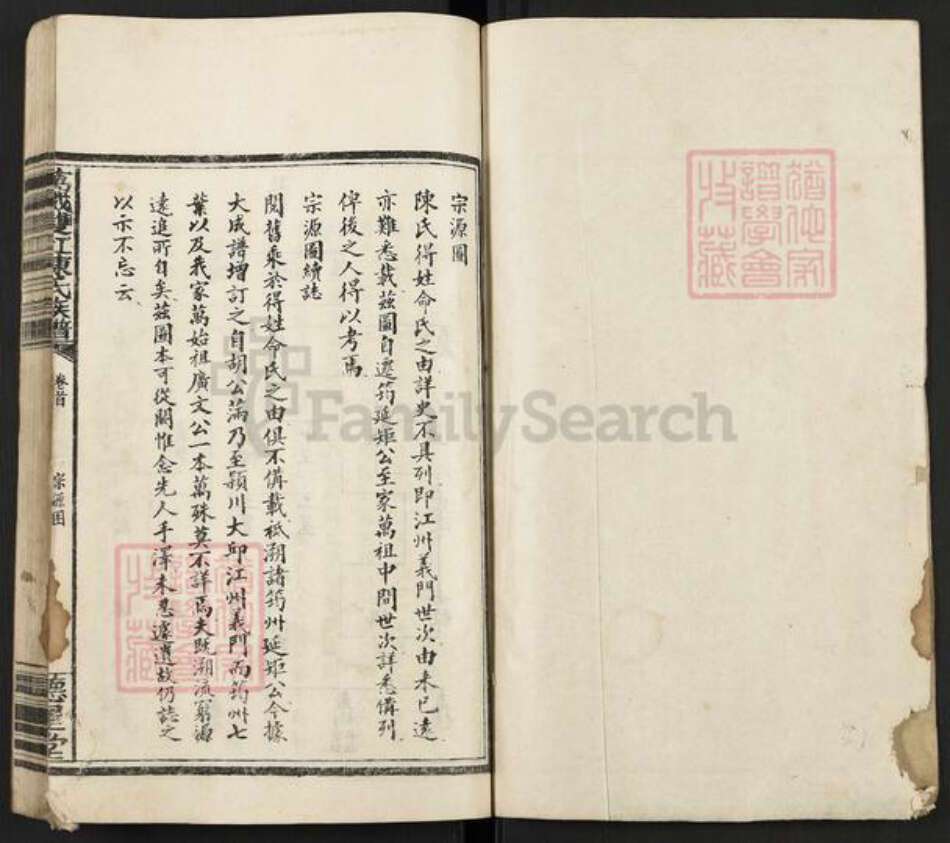 宗源圖
陳氏得姓命氏之由詳史不具列即江州義門世次由來已遠
亦難悉載茲圖自遷筠延矩公至家萬祖中間世次詳悉備列
俾後之人得以考焉
宗源圖續誌
閱舊乘於得姓命氏之由俱不備載祗溯諸筠州延矩公今據
大成譜增訂之自胡公滿乃至潁川大邱江州義門而筠州七
葉以及我家萬始祖廣文公一本萬殊莫不詳焉夫既溯流窮源
遠追所自矣茲圖本可從闕惟念先人手澤未忍遽遺故仍誌之
以示不忘云
萬載雙江陳氏族譜
卷首
宗源圖
德星堂
猶他家譜學會收藏
FamilySearch